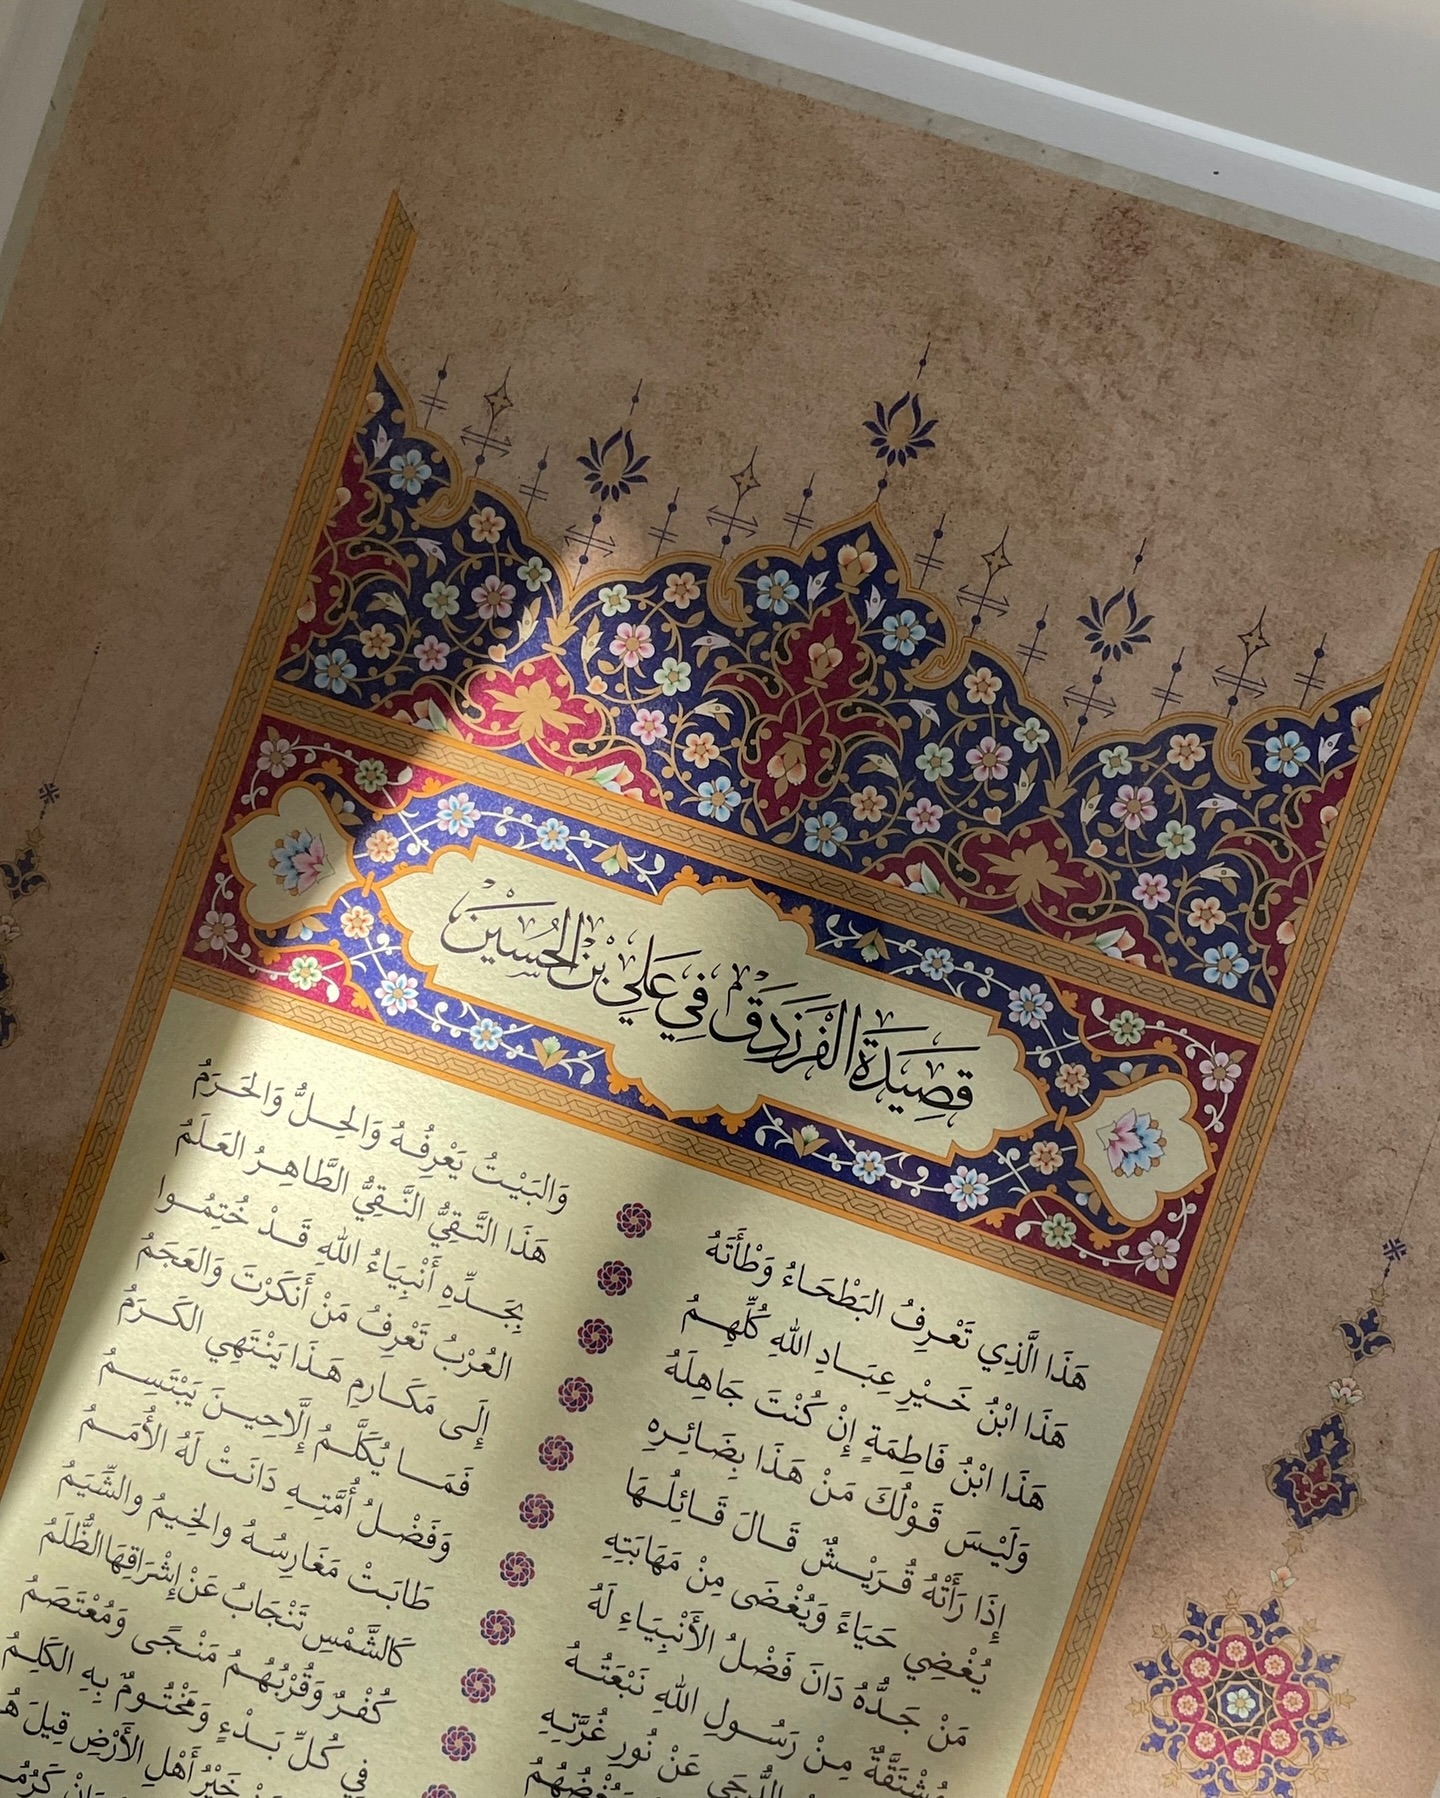 قَصِيدَةُ الْفَرَزْدَقِ فِي عَلِي بْنِ الْحُسَيْنِ
هَذَا الَّذِي تَعْرِفُ البَطْحَاءُ وَطْأَتَهُ وَالبَيْتُ يَعْرِفُهُ وَالحِلُّ وَالحَرَمُ
هَذَا ابْنُ خَيْرِ عِبَادِ اللهِ كُلِّهِمُ هَذَا التَّقِيُّ النَّقِيُّ الطَّاهِرُ العَلَمُ
هَذَا ابْنُ فَاطِمَةٍ إِنْ كُنْتَ جَاهِلَهُ بِجَدِّهِ أَنْبِيَاءُ اللهِ قَدْ خُتِمُوا
وَلَيْسَ قَوْلُكَ مَنْ هَذَا بِضَائِرِهِ العُرْبُ تَعْرِفُ مَنْ أَنكَرْتَ وَالعَجَمُ
إِذَا رَأَتْهُ قُرَيْشٌ قَالَ قَائِلُهَا إِلَى مَكَارِمِ هَذَا يَنْتَهِي الكَرَمُ
يُغْضِي حَيَاءً وَيُغْضَى مِنْ مَهَابَتِهِ فَمَا يُكَلَّمُ إِلَّا حِينَ يَبْتَسِمُ
مَنْ جَدُّهُ دَانَ فَضْلُ الأَنْبِيَاءِ لَهُ وَفَضْلُ أُمَّتِهِ دَانَتْ لَهُ الأُمَمُ
مُشْتَقَّةٌ مِنْ رَسُولِ اللهِ نَبْعَتُهُ طَابَتْ مَغَارِسُهُ والخِيمُ والشِّيَمُ
الدُّجَى عَنْ نُورِ غُرَّتِهِ كَالشَّمْسِ تَنْجَابُ عَنْ إِشْرَاقِهَا الظُّلَمُ
كُفْرٌ وَقُرْبُهُمُ مَنْجًى وَمُعْتَصَمُ
فِي كُلِّ بَدْءٍ وَمَخْتُومٌ بِهِ الكَلِمُ
خَيْرُ أَهْلِ الأَرْضِ قِيلَ